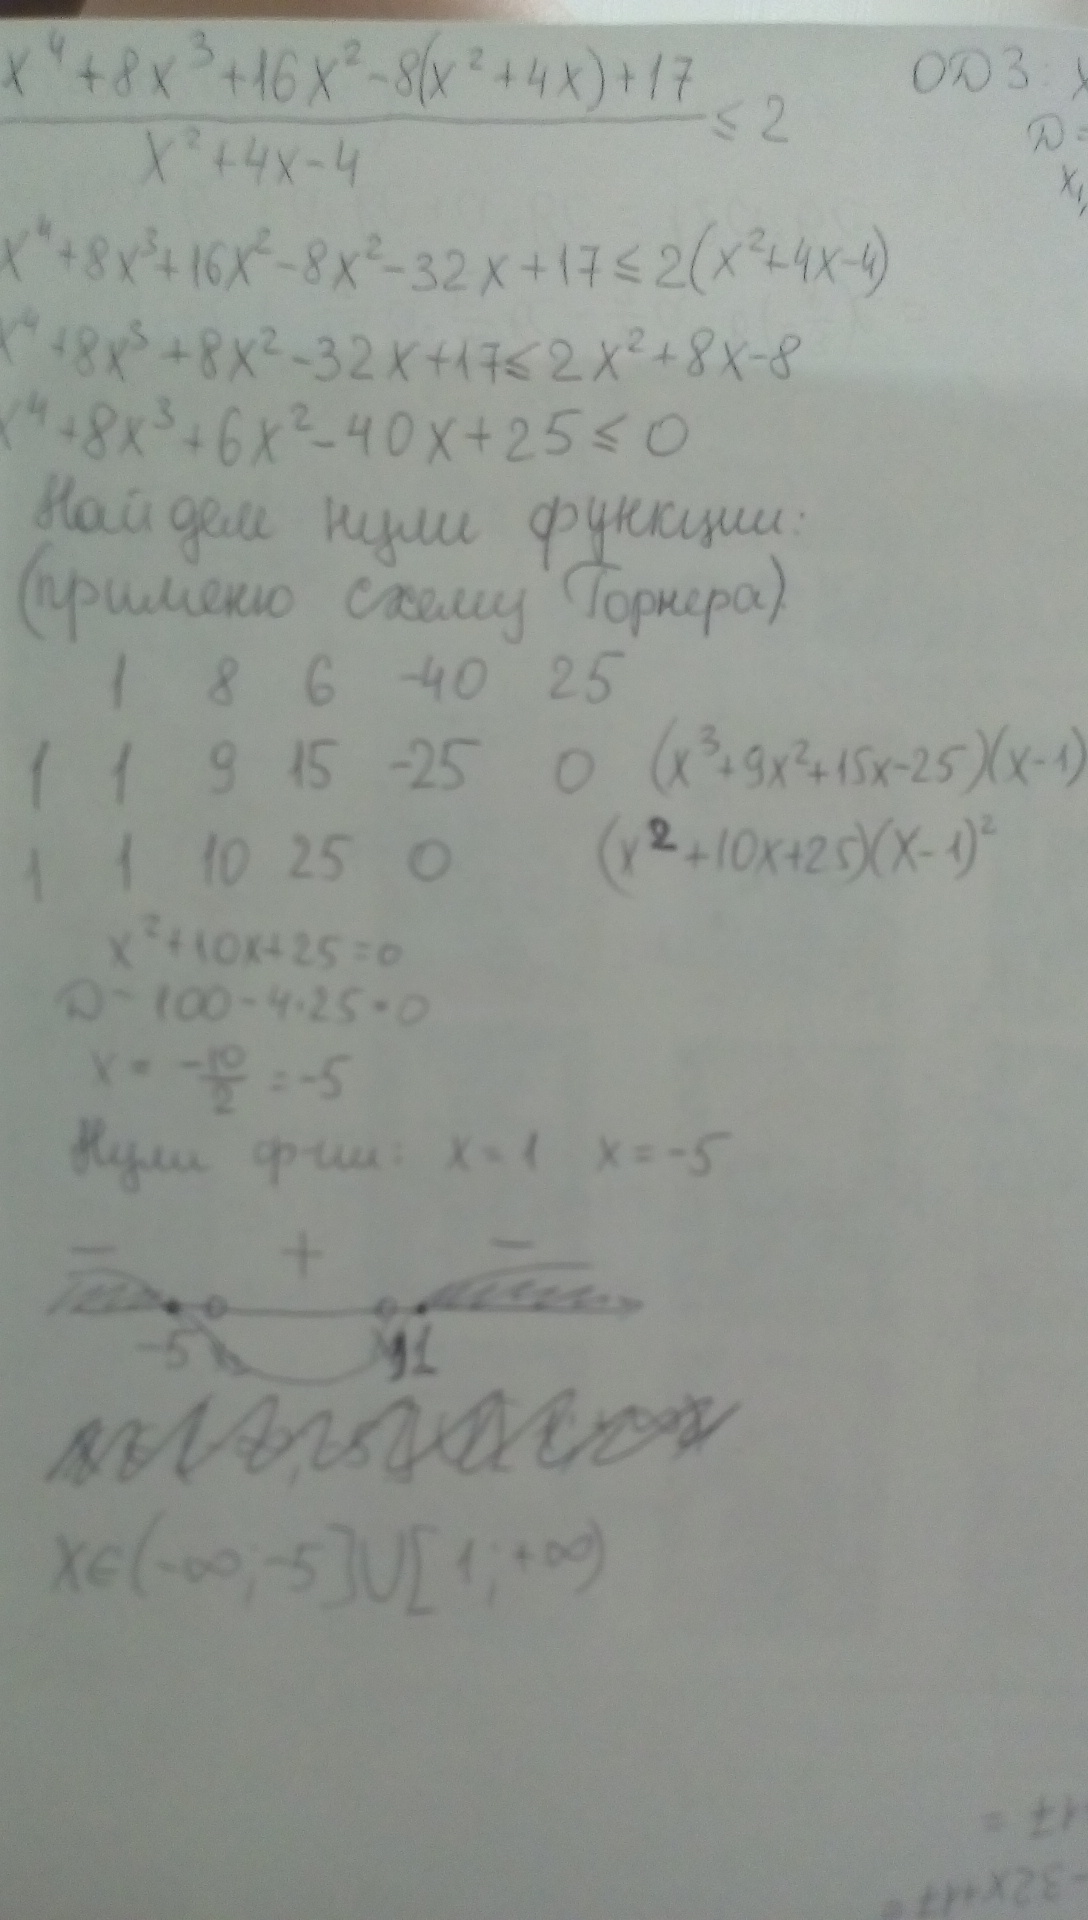 x⁴+8x³+16x²-8(x²+4x)+17 / x²+4x-4 ≤ 2
ОДЗ: x
D=
x₁,
x⁴+8x³+16x²-8x²-32x+17≤2(x²+4x-4)
x⁴+8x³+8x²-32x+17≤2x²+8x-8
x⁴+8x³+6x²-40x+25≤0
Найдем нули функции:
(применю схему Горнера)
1 8 6 -40 25
1 1 9 15 -25 0 (x³+9x²+15x-25)(x-1)
1 1 10 25 0 (x²+10x+25)(x-1)²
x²+10x+25=0
D=100-4·25=0
x=-10/2=-5
Нули ф-ии: x=1 x=-5
- + -
-5 1
x∈(-∞;-5]∪[1;+∞)
17=
-32x+17=